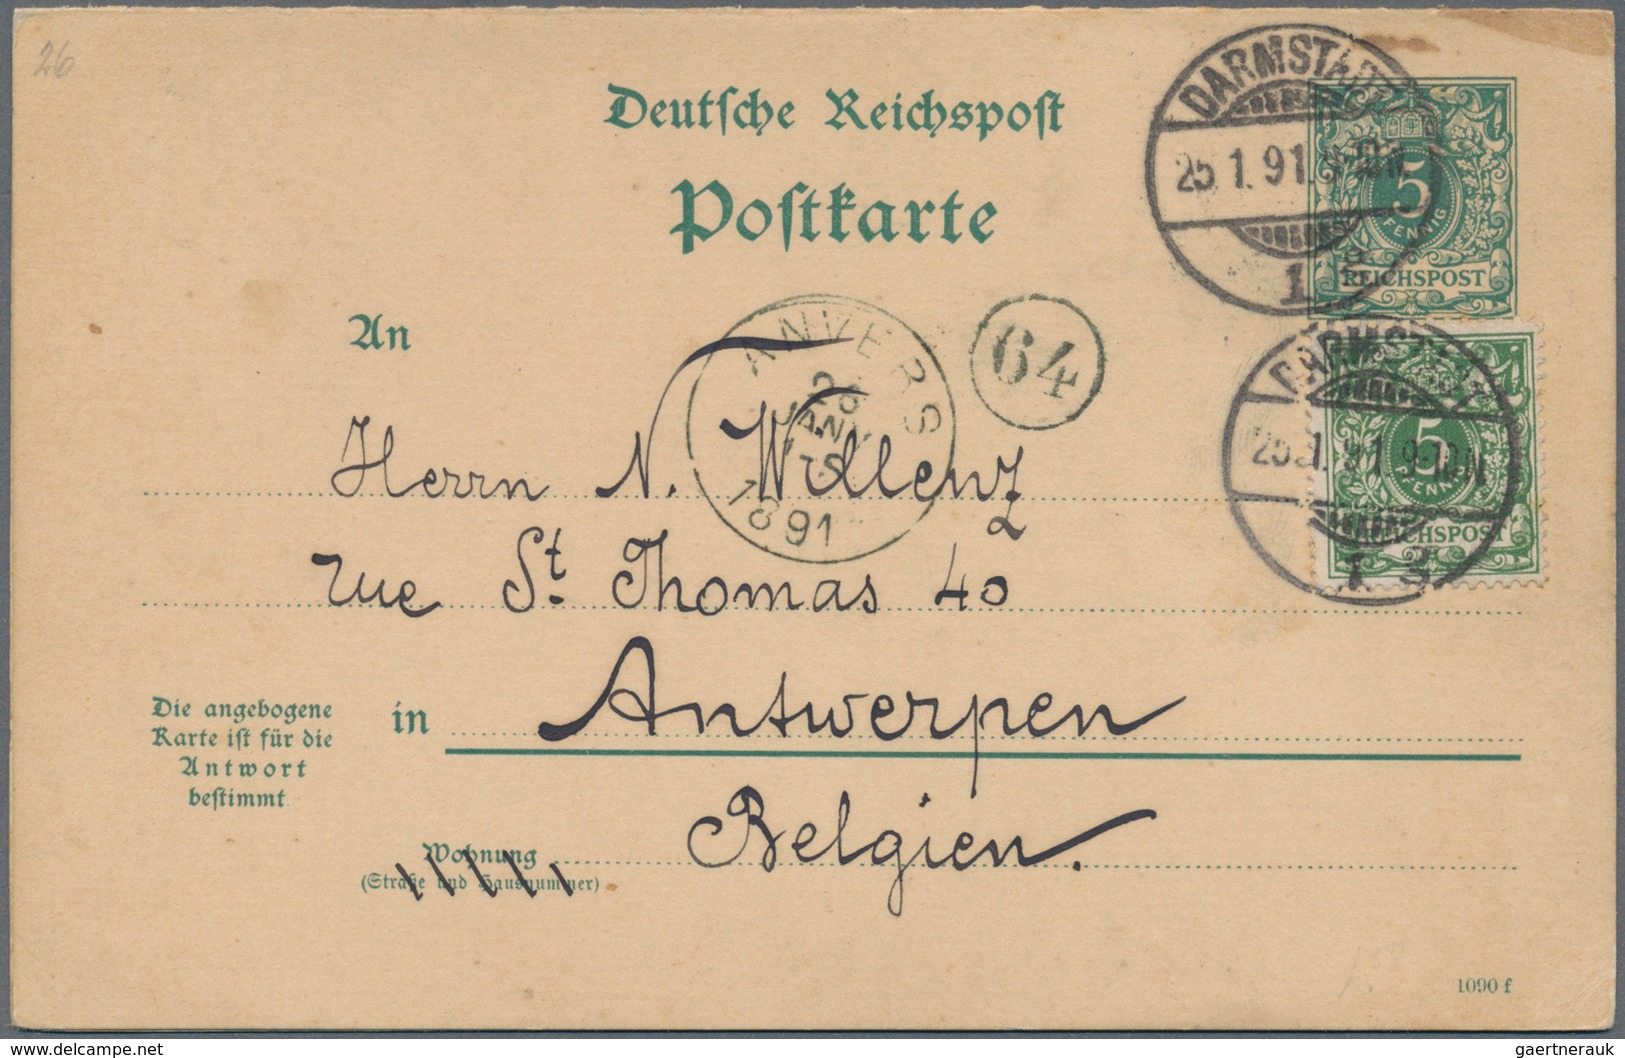 26
Deutsche Reichspost
Postkarte
DARMSTADT
25.1.91.
1
5
PFENNIG
REICHSPOST
An
ANVERS
26
JANV
1891
64
DARMSTADT
25.1.91 9-10N
1.
5
PFENNIG
REICHSPOST
Herrn N. Willenz
rue St. Thomas 40
Die angebogene
Karte ist für die
Antwort
bestimmt
in Antwerpen
Belgien.
Wohnung
(Straße und Hausnummer)
1090 f
www.delcampe.net
gaertnerauk